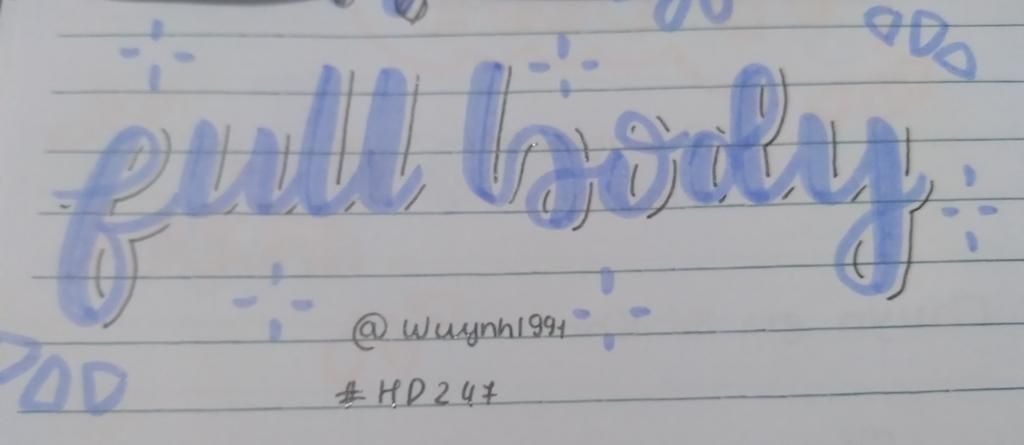 full body
@wuynh1991
#HD247